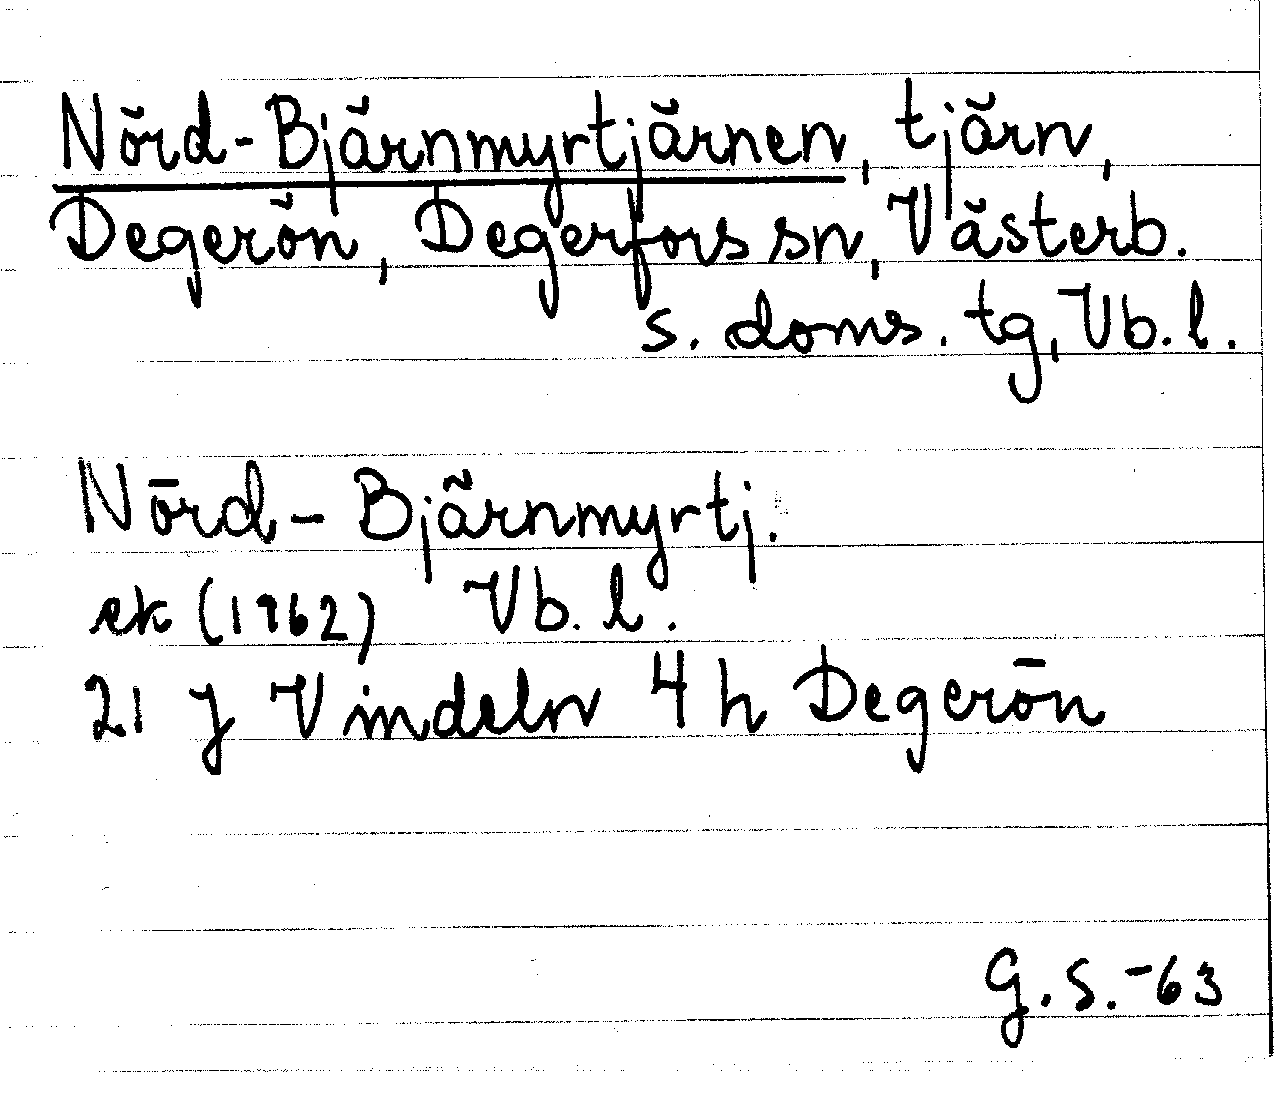 Nörd-Bjärnmyrtjärnen, tjärn,
Degerön, Degerfors sn, Västerb.
s. doms. tg, Vb. l.
Nörd-Bjärnmyrtj.
ek (1962) Vb. l.
21 J Vindeln 4 h Degerön
G. S. -63